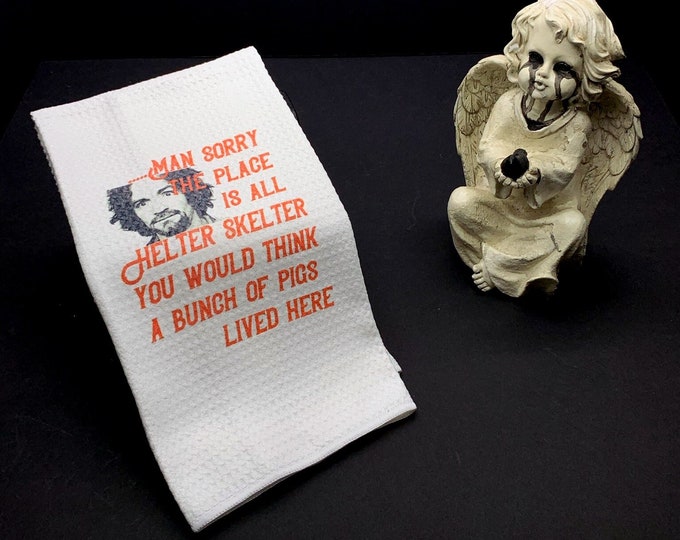 MAN SORRY
THE PLACE
IS ALL
HELTER SKELTER
YOU WOULD THINK
A BUNCH OF PIGS
LIVED HERE